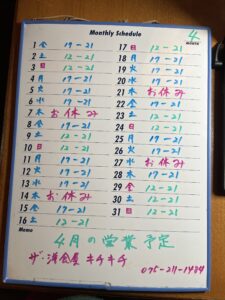 Monthly Schedule
4
MONTH
1 金 17-21
2 土 12-21
3 日 12-21
4 月 17-21
5 火 17-21
6 水 17-21
7 木 お休み
8 金 17-21
9 土 12-21
10 日 12-21
11 月 17-21
12 火 17-21
13 水 17-21
14 木 お休み
15 金 17-21
16 土 12-21
17 日 12-21
18 月 17-21
19 火 17-21
20 水 17-21
21 木 お休み
22 金 17-21
23 土 12-21
24 日 12-21
25 月 17-21
26 火 17-21
27 水 17-21
28 木 お休み
29 金 12-21
30 土 12-21
31 日 12-21
Memo
4月の営業予定
ザ・洋食屋 キチキチ
075-211-1484